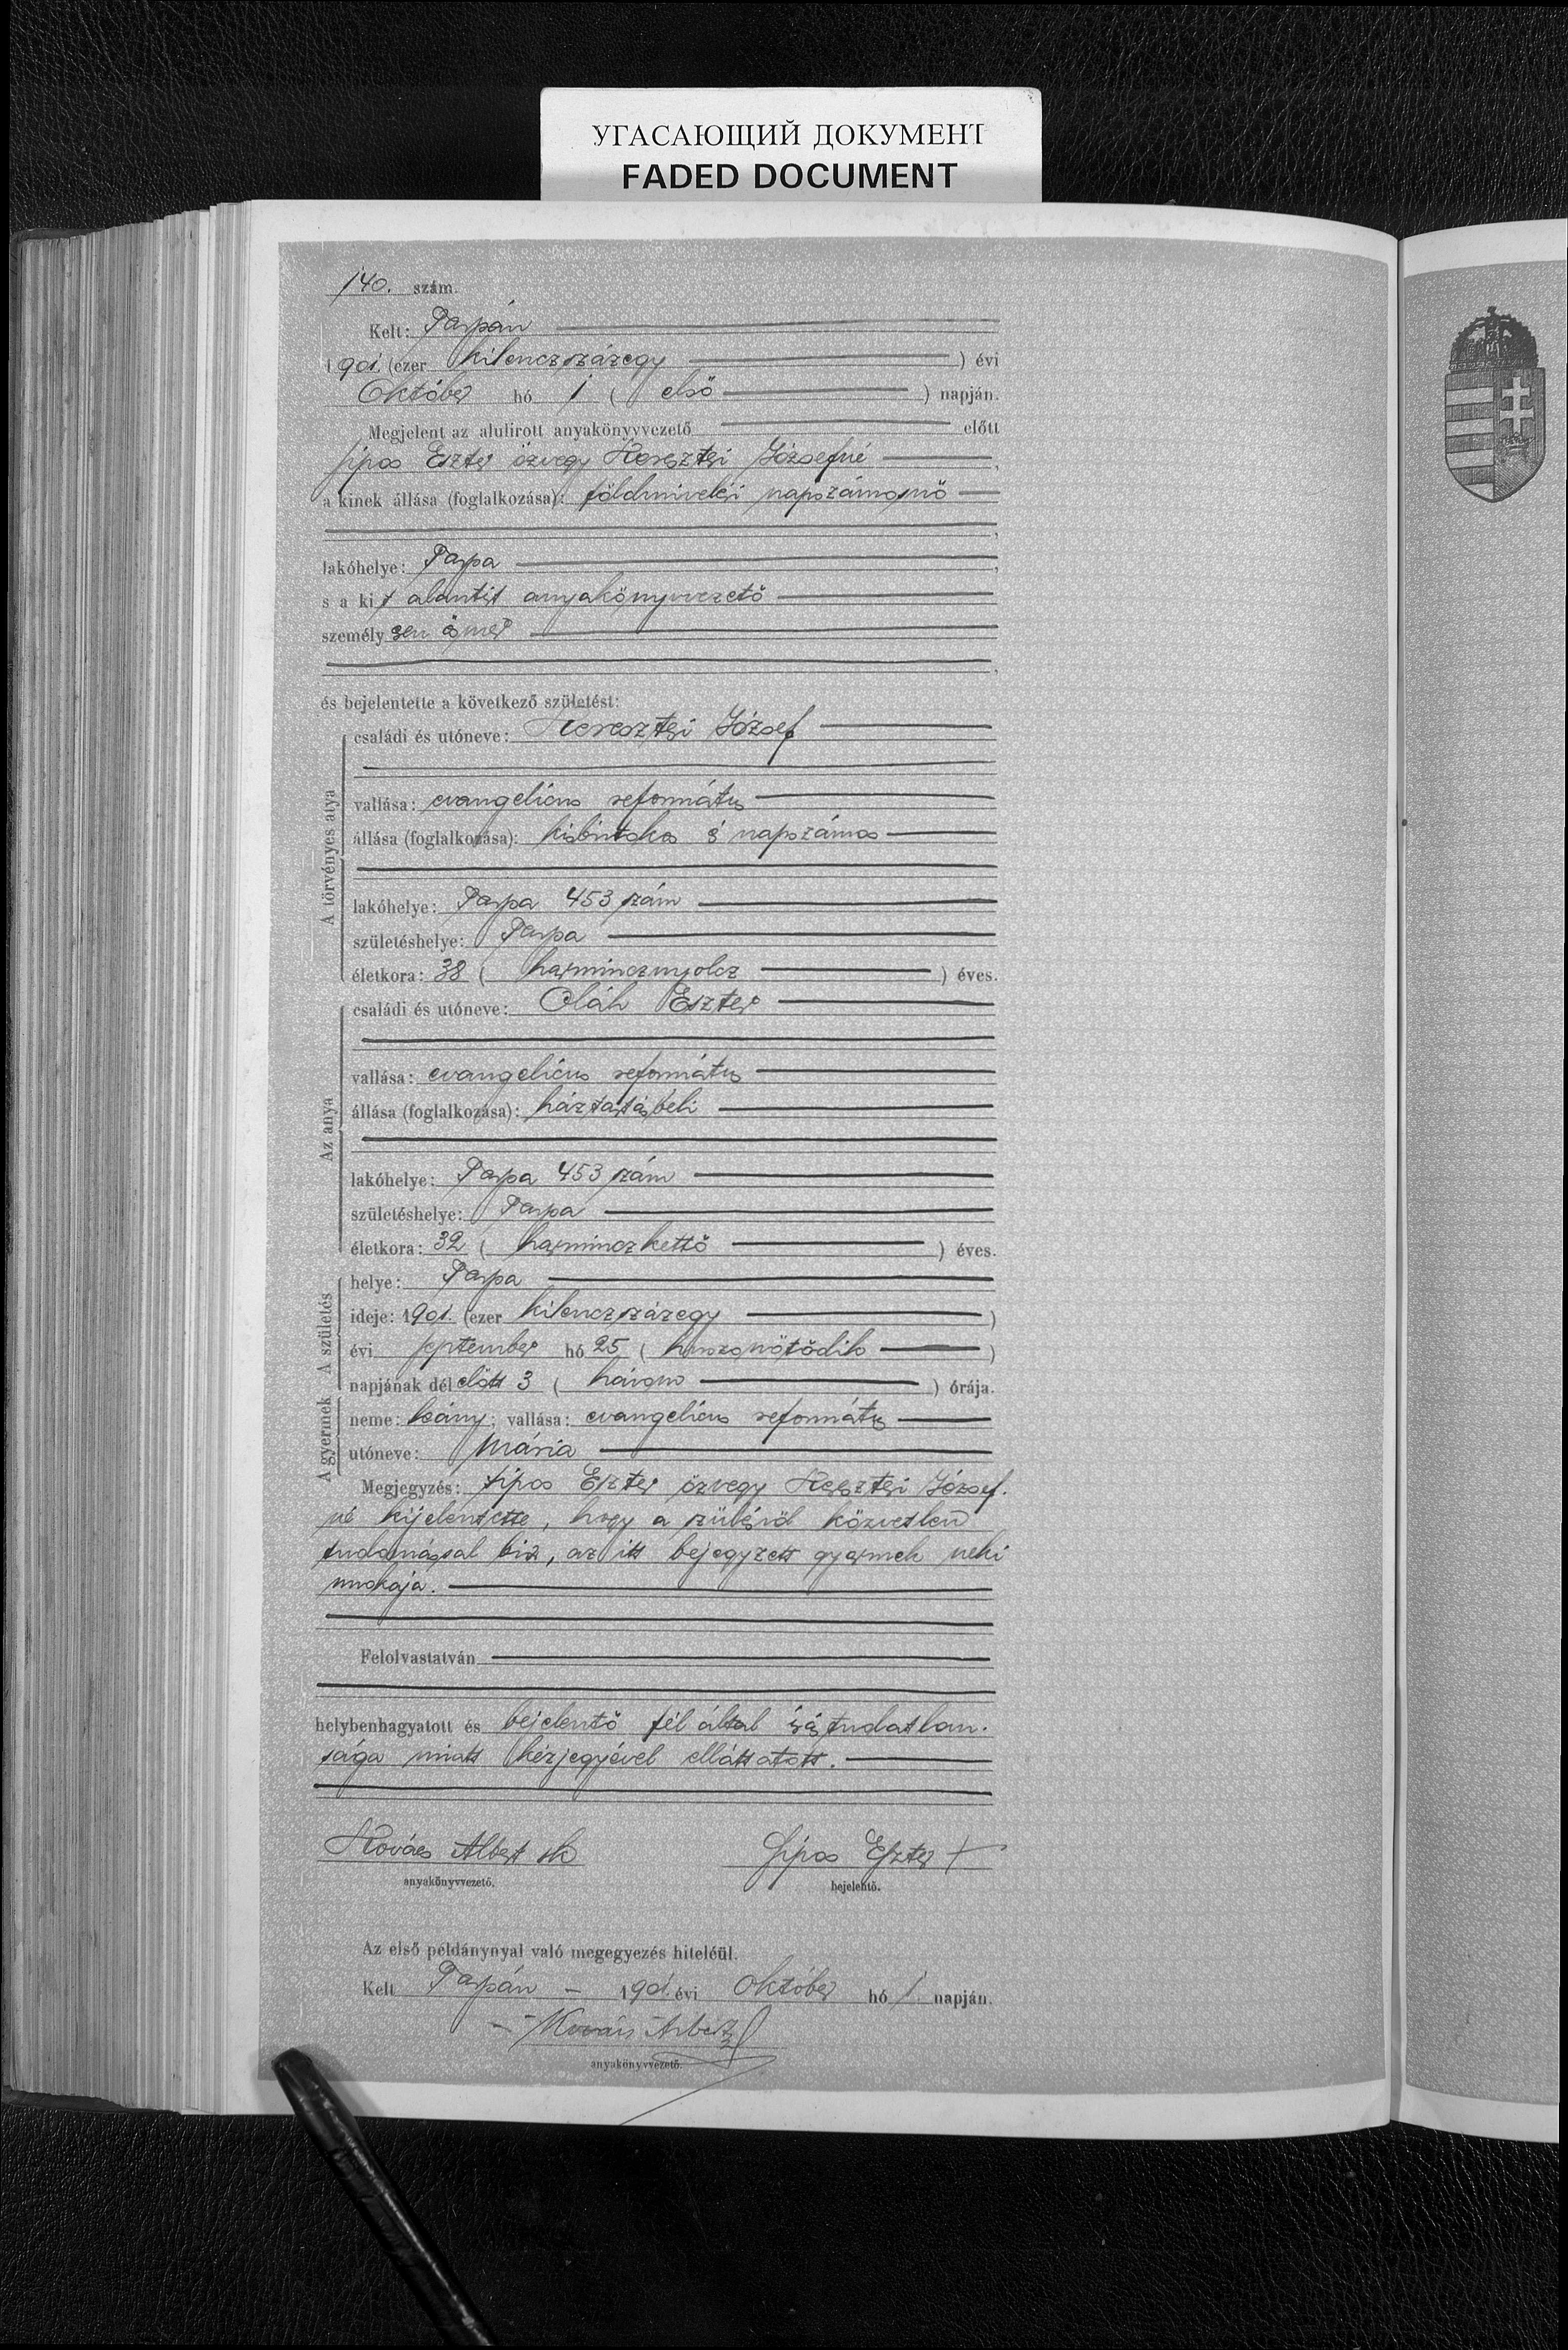 УГАСАЮЩИЙ ДОКУМЕНТ
FADED DOCUMENT
140. szám.
Kelt: Tarpán
1901. (ezer kilenczszázegy ) évi
Október hó 1 ( első ) napján.
Megjelent az alulirott anyakönyvvezető előtt
Sipos Eszter özvegy Keresztesi Józsefné ,
a kinek állása (foglalkozása): földmivelési napszámosnő
,
lakóhelye: Tarpa ,
s a kit alantirt anyakönyvvezető
személyesen ösmer
,
és bejelentette a következő születést:
A törvényes atya
családi és utóneve: Keresztesi József
vallása: evangelicus református
állása (foglalkozása): kisbirtokos és napszámos
lakóhelye: Tarpa 453 szám
születéshelye: Tarpa
életkora: 38 ( harmincznyolcz ) éves.
Az anya
családi és utóneve: Oláh Eszter
vallása: evangelicus református
állása (foglalkozása): háztartásbeli
lakóhelye: Tarpa 453 szám
születéshelye: Tarpa
életkora: 32 ( harminczkettő ) éves.
A születés
helye: Tarpa
ideje: 1901. (ezer kilenczszázegy )
évi September hó 25 ( huszonötödik )
napjának délelőtt 3 ( három ) órája.
A gyermek
neme: leány; vallása: evangelicus református
utóneve: Mária
Megjegyzés: Sipos Eszter özvegy Keresztesi József-
né kijelentette, hogy a szülésről közvetlen
tudomással bir, az itt bejegyzett gyermek neki
unokája.
Felolvastatván
helybenhagyatott és bejelentő fél által irástudatlan-
sága miatt kézjegyével elláttatott.
Kovács Albert sk
anyakönyvvezető.
Sipos Eszter +
bejelentő.
Az első példánynyal való megegyezés hiteléül.
Kelt Tarpán – 1901. évi október hó 1 napján.
Kovács Albert
anyakönyvvezető.